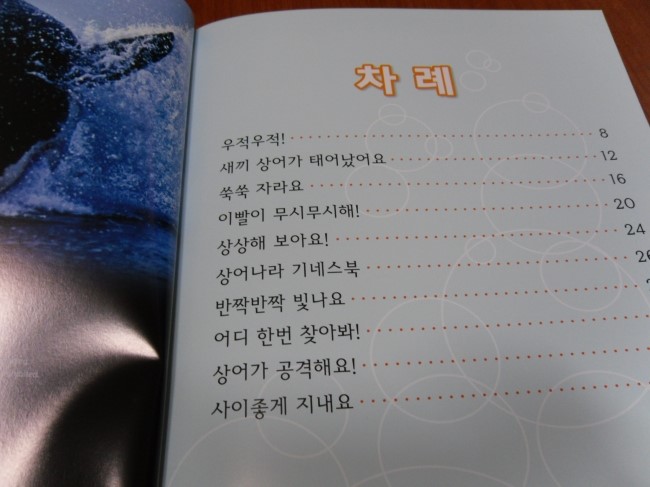 차 례
우적우적! 8
새끼 상어가 태어났어요 12
쑥쑥 자라요 16
이빨이 무시무시해! 20
상상해 보아요! 24
상어나라 기네스북
반짝반짝 빛나요
어디 한번 찾아봐!
상어가 공격해요!
사이좋게 지내요